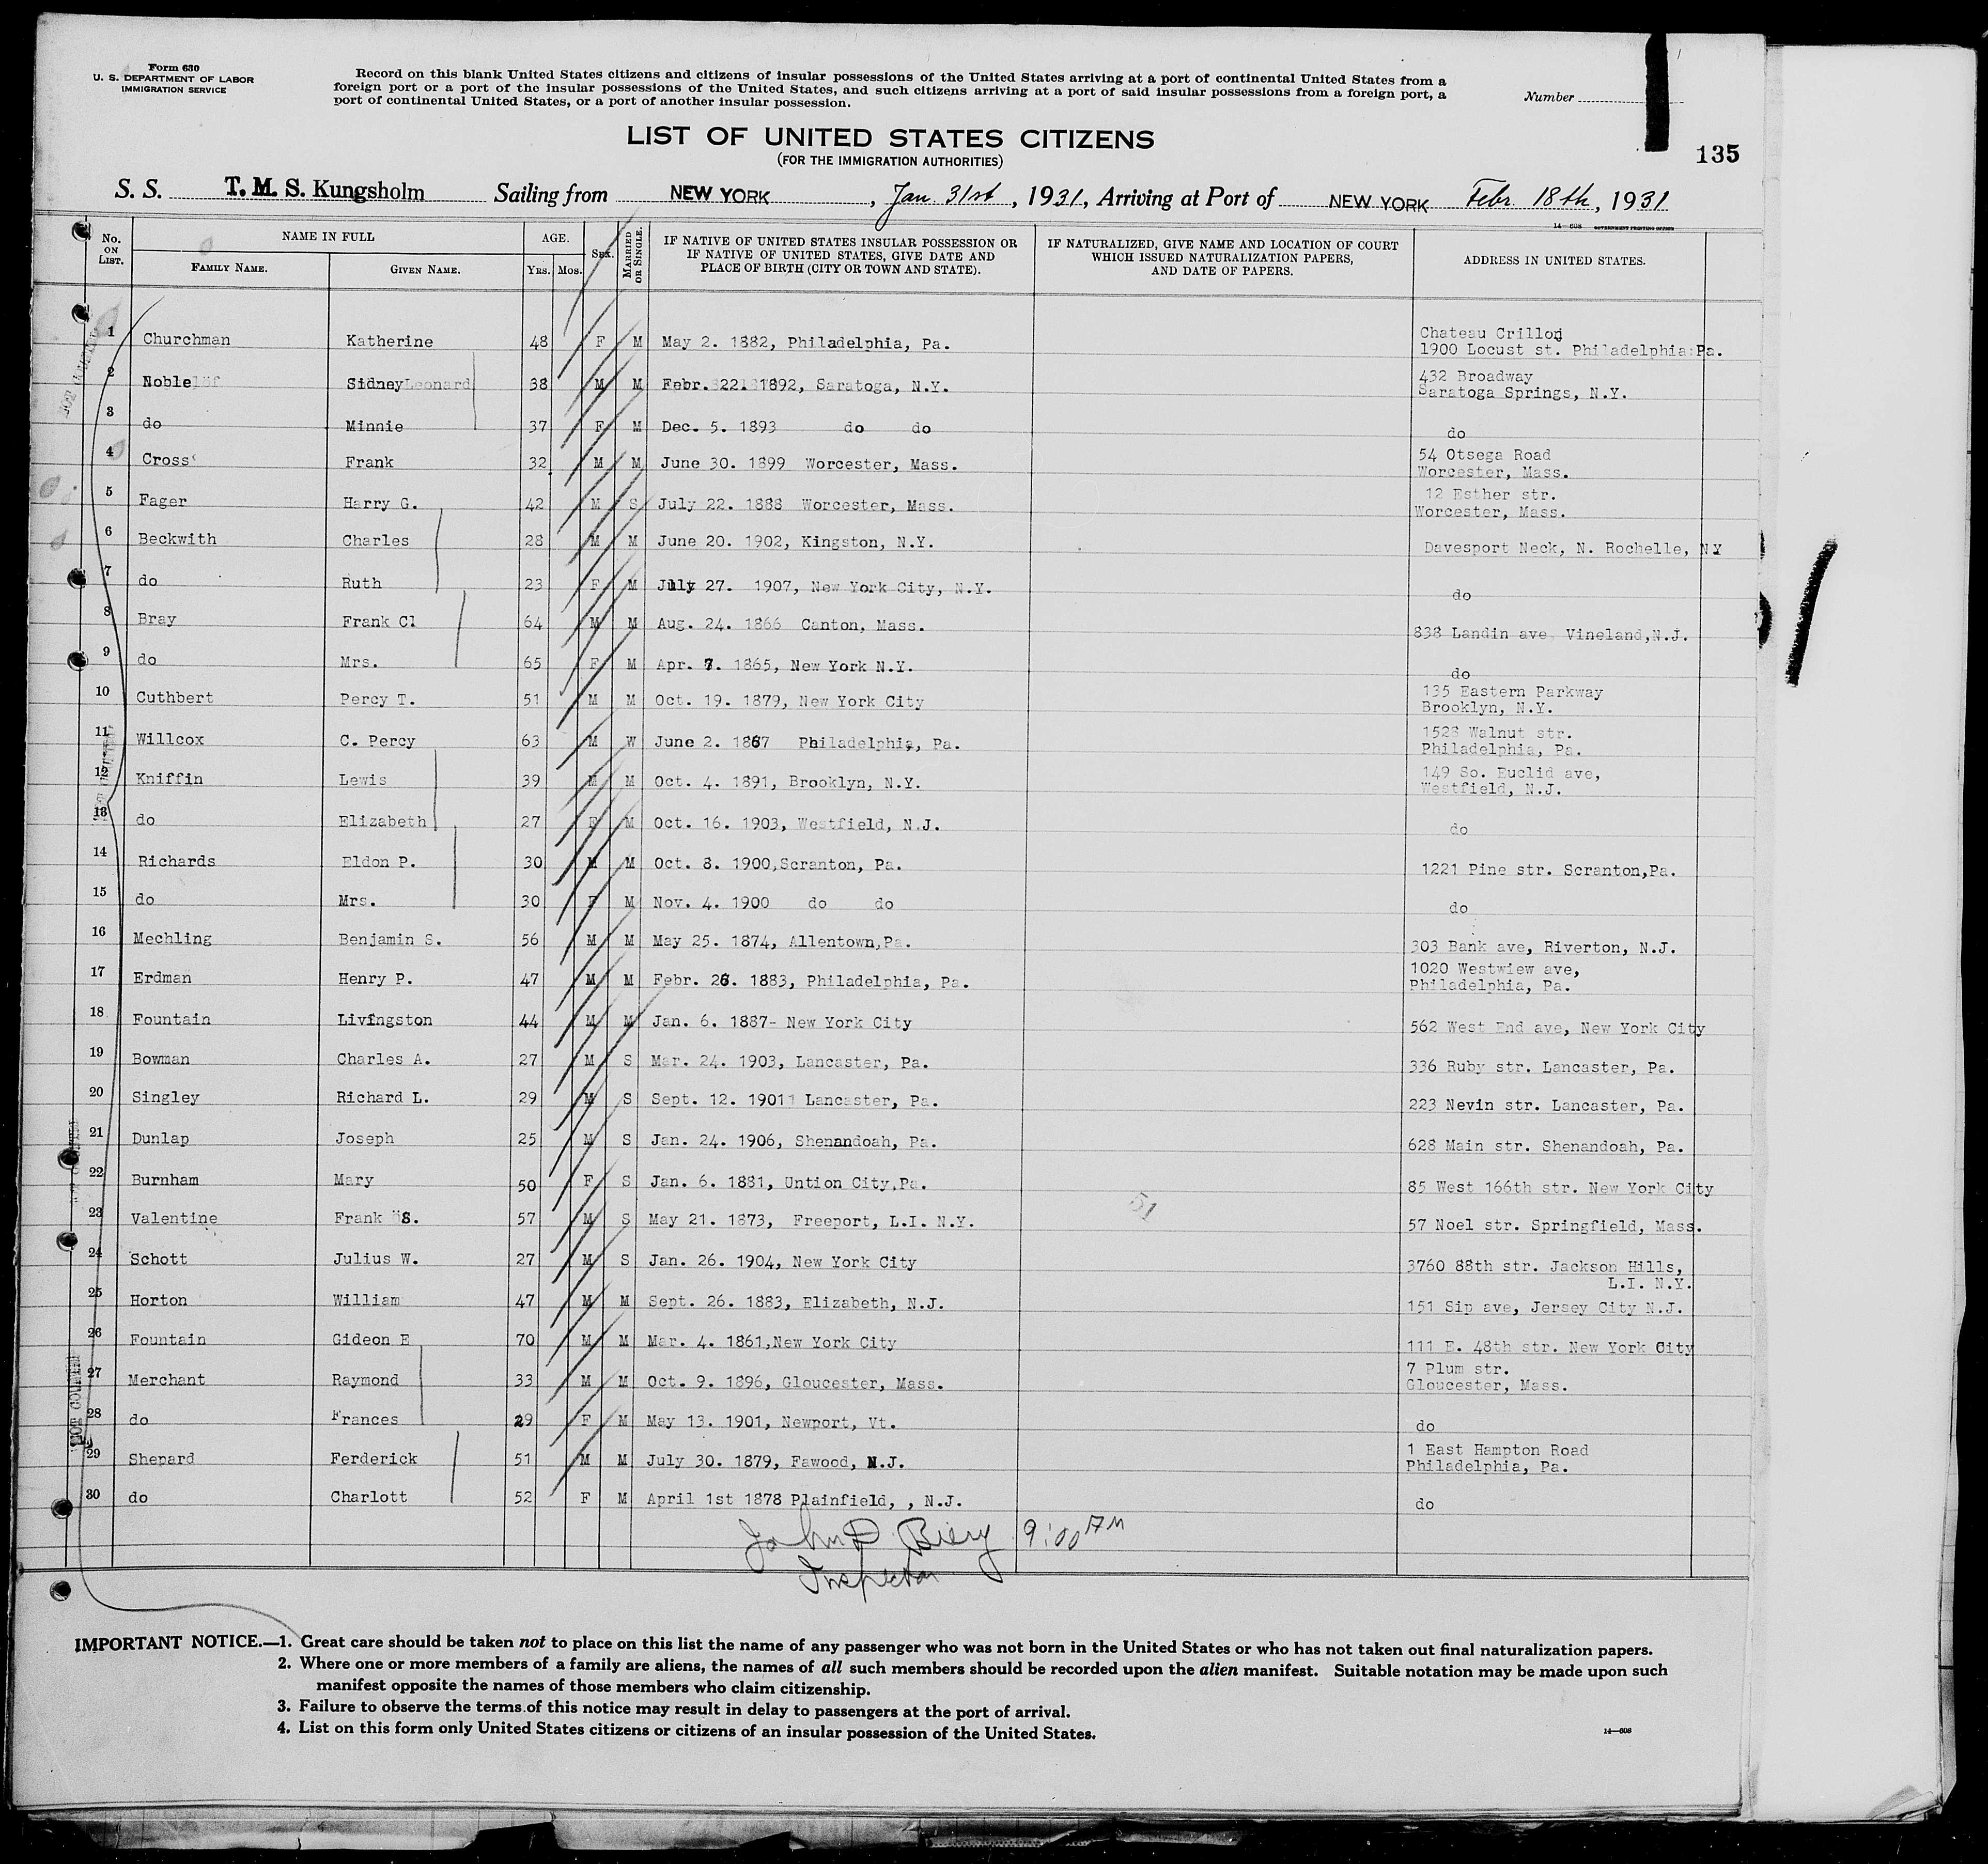 Form 630
U. S. DEPARTMENT OF LABOR
IMMIGRATION SERVICE
Record on this blank United States citizens and citizens of insular possessions of the United States arriving at a port of continental United States from a
foreign port or a port of the insular possessions of the United States, and such citizens arriving at a port of said insular possessions from a foreign port, a
port of continental United States, or a port of another insular possession.
Number
LIST OF UNITED STATES CITIZENS
(FOR THE IMMIGRATION AUTHORITIES)
135
S. S. T. M. S. Kungsholm Sailing from NEW YORK, Jan. 31st, 1931, Arriving at Port of NEW YORK Febr. 18th, 1931
14-608 GOVERNMENT PRINTING OFFICE
No. ON LIST. NAME IN FULL FAMILY NAME. GIVEN NAME. AGE. YRS. MOS. SEX. MARRIED OR SINGLE. IF NATIVE OF UNITED STATES INSULAR POSSESSION OR IF NATIVE OF UNITED STATES, GIVE DATE AND PLACE OF BIRTH (CITY OR TOWN AND STATE). IF NATURALIZED, GIVE NAME AND LOCATION OF COURT WHICH ISSUED NATURALIZATION PAPERS, AND DATE OF PAPERS. ADDRESS IN UNITED STATES.
1 Churchman Katherine 48 F M May 2. 1882, Philadelphia, Pa. Chateau Crillon 1900 Locust st. Philadelphia Pa.
2 Noble Sidney Leonard 38 M M Febr. 22 1892, Saratoga, N.Y. 432 Broadway Saratoga Springs, N.Y.
3 do Minnie 37 F M Dec. 5. 1893 do do do
4 Cross Frank 32 M M June 30. 1899 Worcester, Mass. 54 Otsega Road Worcester, Mass.
5 Fager Harry G. 42 M S July 22. 1888 Worcester, Mass. 12 Esther str. Worcester, Mass.
6 Beckwith Charles 28 M M June 20. 1902, Kingston, N.Y. Davesport Neck, N. Rochelle, NY
7 do Ruth 23 F M July 27. 1907, New York City, N.Y. do
8 Bray Frank Cl 64 M M Aug. 24. 1866 Canton, Mass. 838 Landin ave Vineland,N.J.
9 do Mrs. 65 F M Apr. 7. 1865, New York N.Y. do
10 Cuthbert Percy T. 51 M M Oct. 19. 1879, New York City 135 Eastern Parkway Brooklyn, N.Y.
11 Willcox C. Percy 63 M W June 2. 1867 Philadelphia, Pa. 1528 Walnut str. Philadelphia, Pa.
12 Kniffin Lewis 39 M M Oct. 4. 1891, Brooklyn, N.Y. 149 So. Euclid ave, Westfield, N.J.
13 do Elizabeth 27 F M Oct. 16. 1903, Westfield, N.J. do
14 Richards Eldon P. 30 M M Oct. 8. 1900,Scranton, Pa. 1221 Pine str. Scranton,Pa.
15 do Mrs. 30 F M Nov. 4. 1900 do do do
16 Mechling Benjamin S. 56 M M May 25. 1874, Allentown,Pa. 303 Bank ave, Riverton, N.J.
17 Erdman Henry P. 47 M M Febr. 26. 1883, Philadelphia, Pa. 1020 Westwiew ave, Philadelphia, Pa.
18 Fountain Livingston 44 M M Jan. 6. 1887- New York City 562 West End ave, New York City
19 Bowman Charles A. 27 M S Mar. 24. 1903, Lancaster, Pa. 336 Ruby str. Lancaster, Pa.
20 Singley Richard L. 29 M S Sept. 12. 1901 Lancaster, Pa. 223 Nevin str. Lancaster, Pa.
21 Dunlap Joseph 25 M S Jan. 24. 1906, Shenandoah, Pa. 628 Main str. Shenandoah, Pa.
22 Burnham Mary 50 F S Jan. 6. 1881, Untion City,Pa. 85 West 166th str. New York City
23 Valentine Frank S. 57 M S May 21. 1873, Freeport, L.I. N.Y. 57 Noel str. Springfield, Mass.
24 Schott Julius W. 27 M S Jan. 26. 1904, New York City 3760 88th str. Jackson Hills, L.I. N.Y.
25 Horton William 47 M M Sept. 26. 1883, Elizabeth, N.J. 151 Sip ave, Jersey City N.J.
26 Fountain Gideon E 70 M M Mar. 4. 1861,New York City 111 E. 48th str. New York City
27 Merchant Raymond 33 M M Oct. 9. 1896, Gloucester, Mass. 7 Plum str. Gloucester, Mass.
28 do Frances 29 F M May 13. 1901, Newport, Vt. do
29 Shepard Ferderick 51 M M July 30. 1879, Fawood, N.J. 1 East Hampton Road Philadelphia, Pa.
30 do Charlott 52 F M April 1st 1878 Plainfield, , N.J. do
51
John D. Biery 9:00 AM
Inspector
IMPORTANT NOTICE.—1. Great care should be taken not to place on this list the name of any passenger who was not born in the United States or who has not taken out final naturalization papers.
2. Where one or more members of a family are aliens, the names of all such members should be recorded upon the alien manifest. Suitable notation may be made upon such
manifest opposite the names of those members who claim citizenship.
3. Failure to observe the terms of this notice may result in delay to passengers at the port of arrival.
4. List on this form only United States citizens or citizens of an insular possession of the United States.
14—608